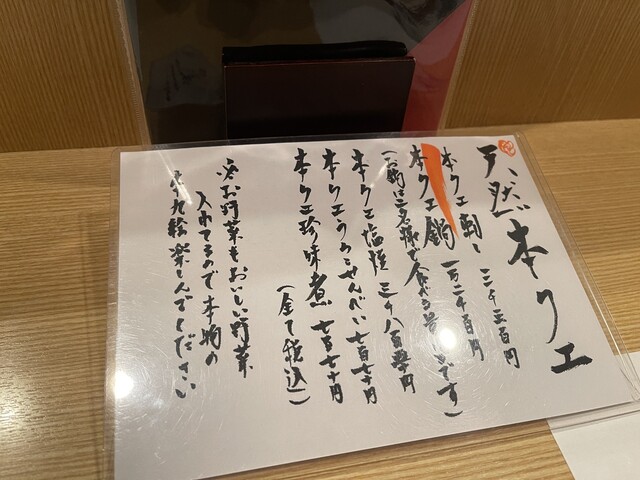 天然本クエ
本クエ刺し 二千五百円
本クエ鍋 一万二千百円
(お鍋は二名様で食べる量です)
本クエ塩焼 三千八百五十円
本クエうろこせんべい 七百七十円
本クエ珍味煮 七百七十円
(全て税込)
お野菜もおいしい野菜
入れてるので本物の
本九絵楽しんでください